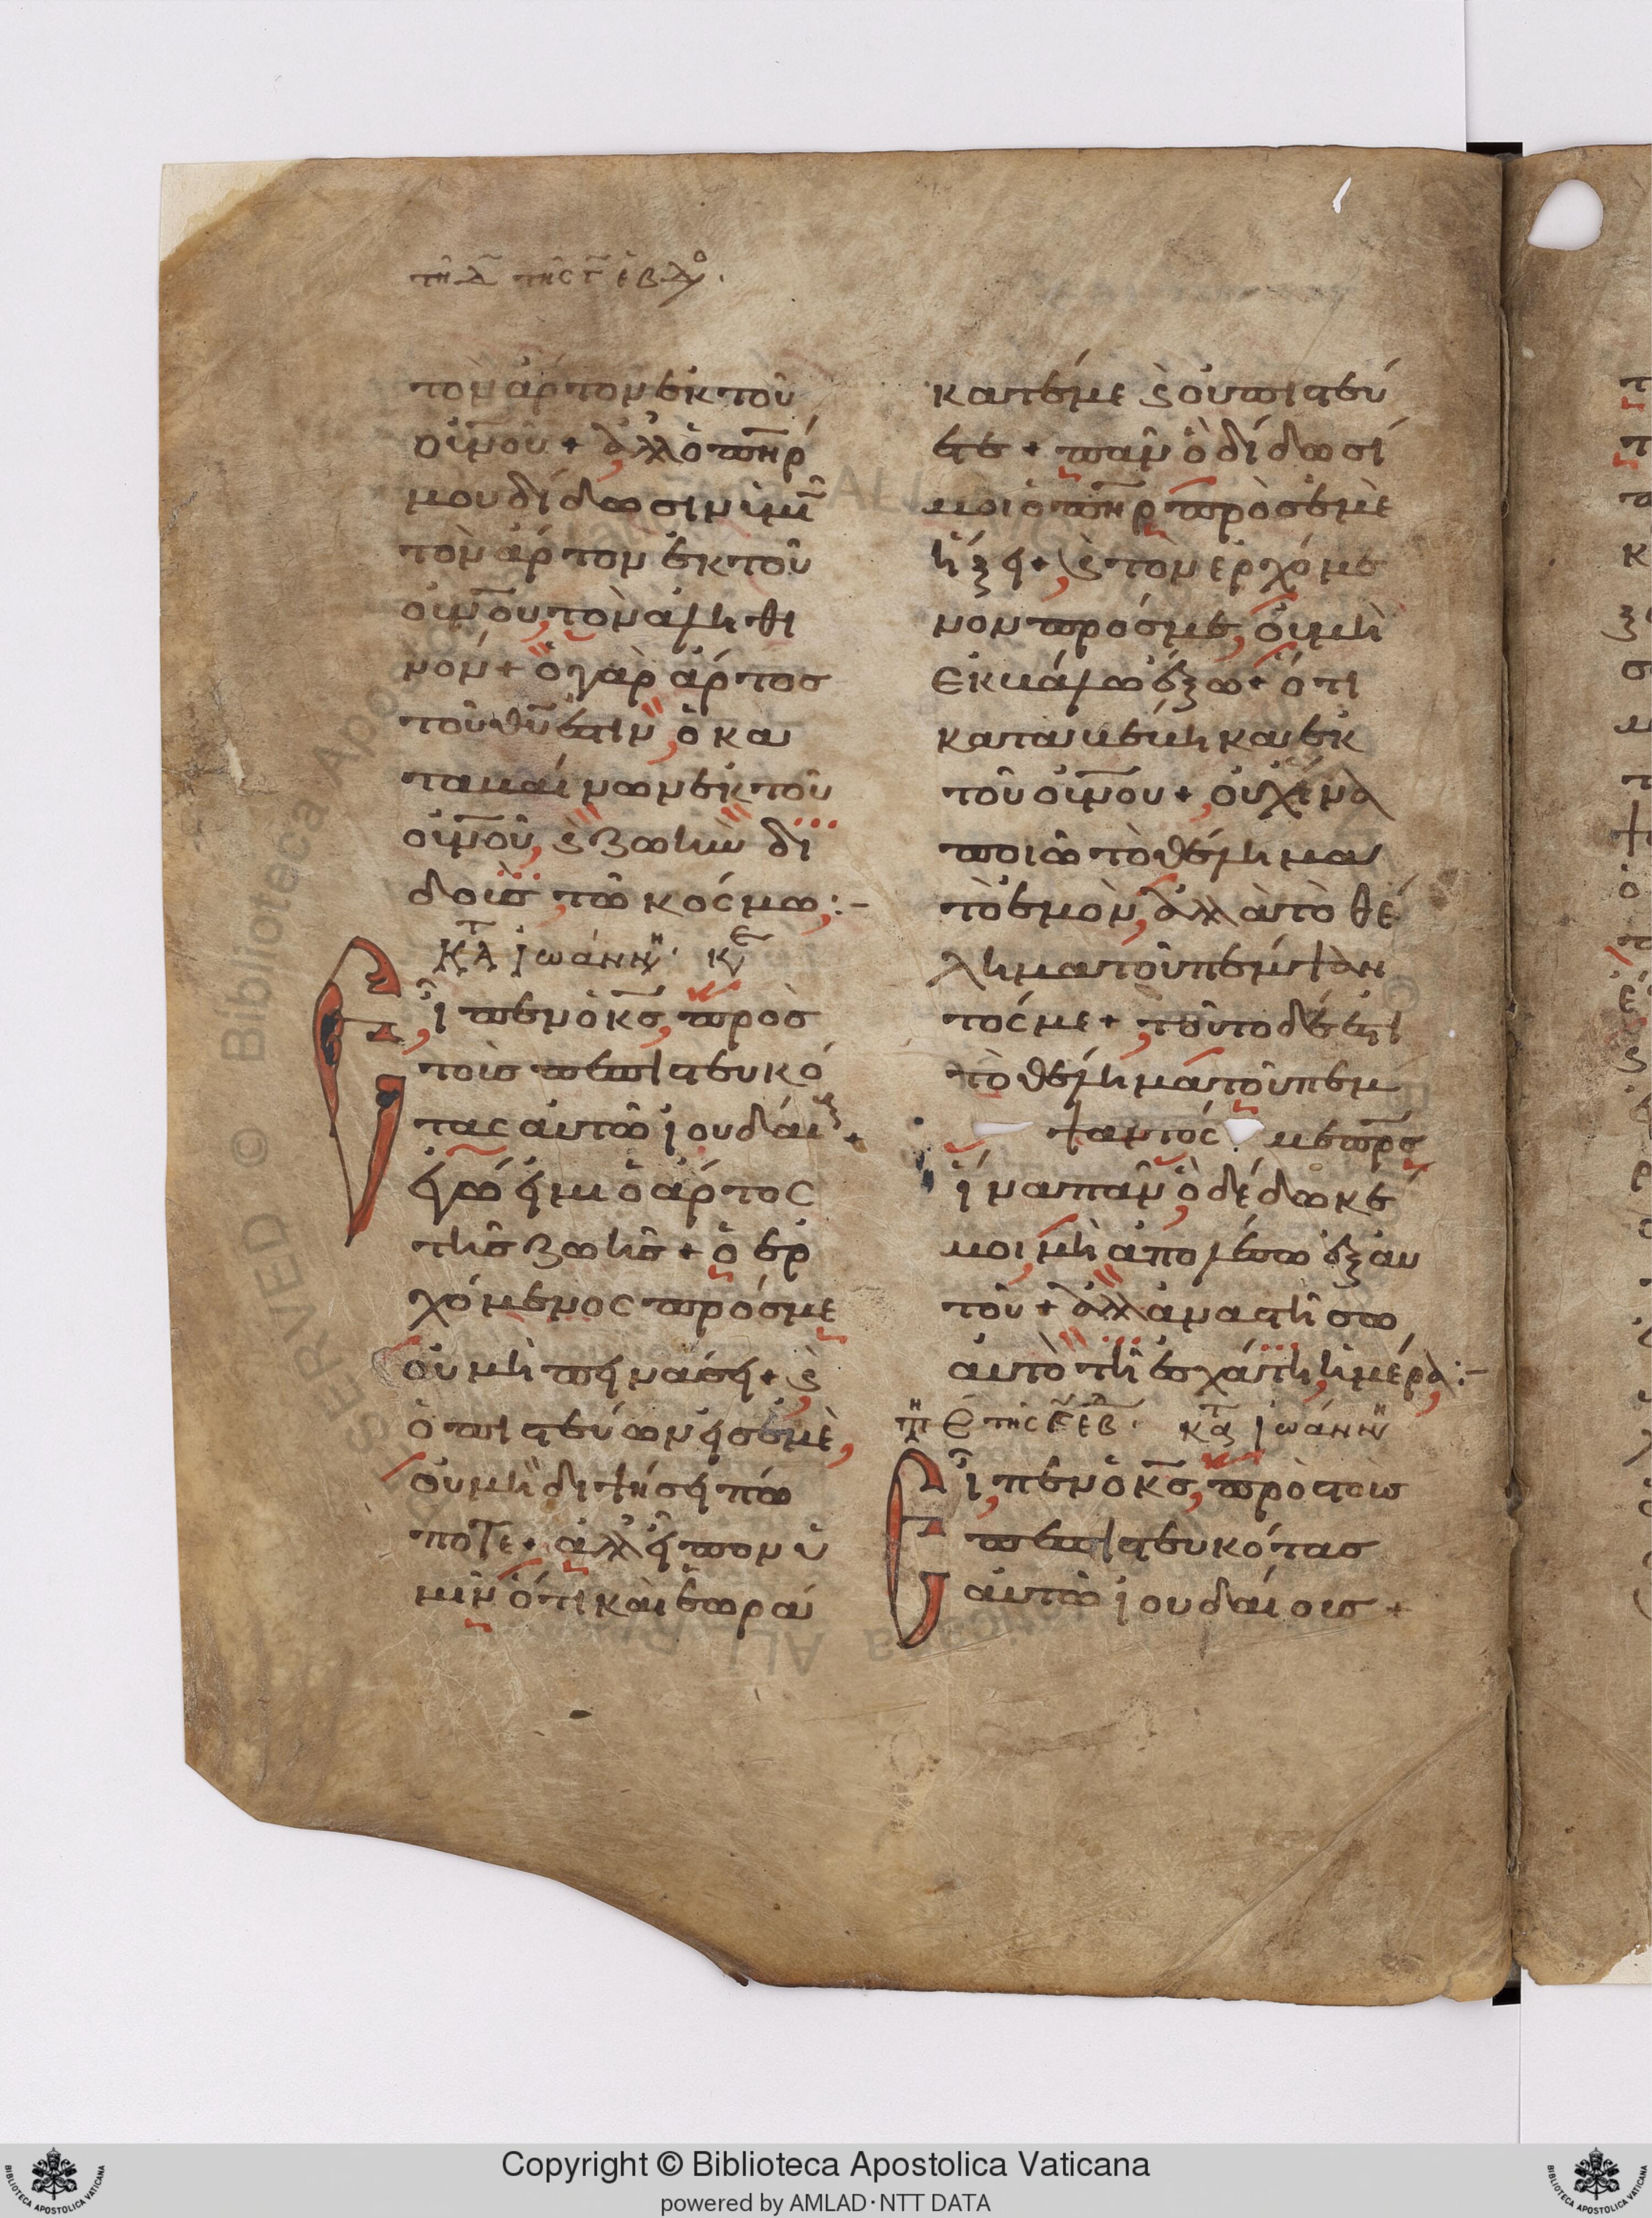 τῆ δ τῆς γ ἑβδο
τὸν ἄρτον ἐκ τοῦ
οὐνοῦ + ἀλλ ὁ πηρ
μου δίδωσιν ὑμῖ
τὸν ἄρτον ἐκ τοῦ
οὐνου, τὸν ἀληθι
νόν + ὁ γὰρ ἄρτος
τοῦ θυ ἐστιν, ὁ κα
ταβαίνων ἐκ τοῦ
οὐνοῦ, ϗ ζωὴν δι
δοὺς, τῶ κόσμω :-
ΚΑΤ ἰωάννην
Εἶπεν ὁ κς, πρὸς
τοὺς πεπιστευκό
τας αὐτῶ ἰουδαί +
ἐγώ εἰμι ὁ ἄρτος
τῆς ζωῆς + ὁ ἐρ
χόμενος πρός με
οὐ μὴ πεινάσει + ϗ
ὁ πιστεύων εἰς ἐμὲ,
οὐ μὴ διψήσει πώ
ποτε + ἀλλ εἶπον ὑ
μῖν ὅτι καὶ ἑωρά
κατέ με ϗ οὐ πιστεύ
ετε + πᾶν ὃ δίδωσί
μοι ὁ πηρ πρὸς ἐμὲ
ἥξει + ϗ τὸν ἐρχόμε
νον πρός με, οὐ μὴ
ἐκβάλω ἔξω + ὅτι
καταβέβηκα ἐκ
τοῦ οὐνου + οὐχ ἵνα
ποιῶ τὸ θέλημα
τὸ ἐμὸν, ἀλλὰ τὸ θέ
λημα τοῦ πέμψαν
τός με + τοῦτο δέ ἐστι
τὸ θέλημα τοῦ πέμ
ψαντός με πρς
ἵνα πᾶν ὃ δέδωκέ
μοι, μὴ ἀπολέσω ἐξ αυ
τοῦ + ἀλλ ἀναστήσω
αὐτὸ τῆ ἐσχάτη, ἡμέρα :-
τῆς ἑβ. κατ ἰωάννην
Εἶπεν ὁ κς, πρὸς τοὺς
πεπιστευκότας
αὐτῶ ἰουδαίους +
Copyright © Biblioteca Apostolica Vaticana
powered by AMLAD·NTT DATA